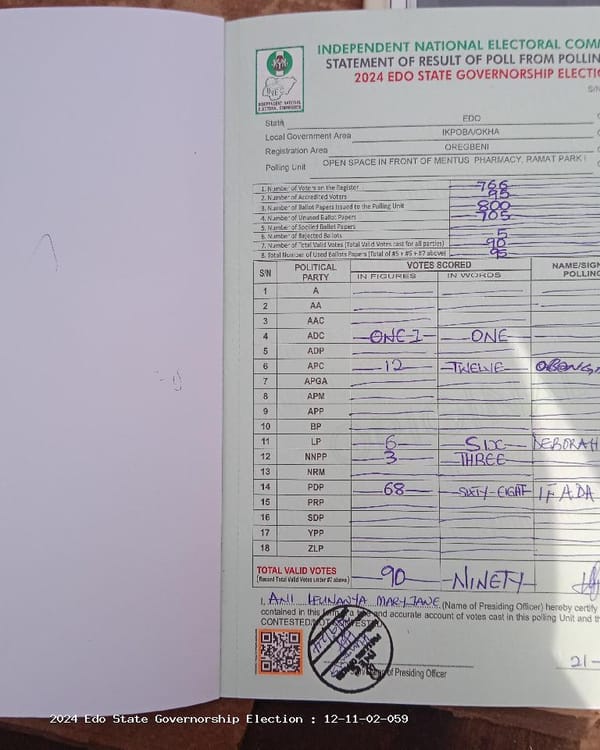 INDEPENDENT NATIONAL ELECTORAL COM
STATEMENT OF RESULT OF POLL FROM POLLIN
2024 EDO STATE GOVERNORSHIP ELECTI
S/N
INEC
INDEPENDENT NATIONAL
ELECTORAL COMMISSION
State EDO
Local Government Area IKPOBA/OKHA
Registration Area OREGBENI
Polling Unit OPEN SPACE IN FRONT OF MENTUS PHARMACY, RAMAT PARK I
1. Number of Voters on the Register 766
2. Number of Accredited Voters 95
3. Number of Ballot Papers Issued to the Polling Unit 800
4. Number of Unused Ballot Papers 705
5. Number of Spoiled Ballot Papers
6. Number of Rejected Ballots 5
7. Number of Total Valid Votes (Total Valid Votes cast for all parties) 90
8. Total Number of Used Ballots Papers (Total of #5 + #6 + #7 above) 95
S/N POLITICAL PARTY VOTES SCORED NAME/SIGN
IN FIGURES IN WORDS POLLING
1 A
2 AA
3 AAC
4 ADC ONE 1 ONE
5 ADP
6 APC 12 TWELVE
7 APGA
8 APM
9 APP
10 BP
11 LP 6 SIX DEBORAH
12 NNPP 3 THREE
13 NRM
14 PDP 68 SIXTY-EIGHT IFADA
15 PRP
16 SDP
17 YPP
18 ZLP
TOTAL VALID VOTES 90 NINETY
(Record Total Valid Votes under #7 above)
I, ANI MARYJANE (Name of Presiding Officer) hereby certify
contained in this form is a true and accurate account of votes cast in this polling Unit and th
CONTESTED/NOT CONTESTED
21-
of Presiding Officer
2024 Edo State Governorship Election : 12-11-02-059